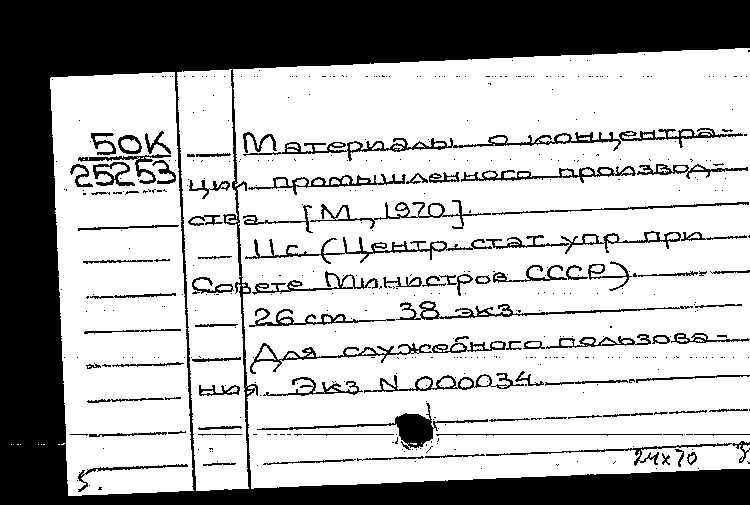 50К
25253
Материалы о концентра-
ции промышленного производ-
ства. [М., 1970].
11с. (Центр. стат. упр. при
Совете Министров СССР).
26 cm. 38 экз.
Для служебного пользова-
ния. Экз N 000034.
24x70
5.